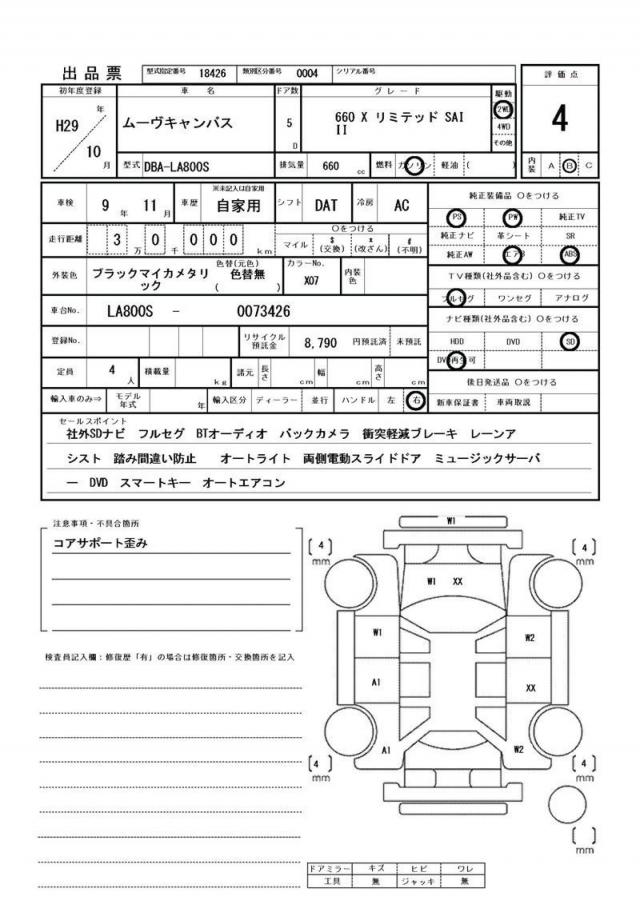 出品票 型式指定番号 18426 類別区分番号 0004 シリアル番号
評価点
初年度登録 車名 ドア数 グレード 駆動
H29 年 ムーヴキャンバス 5 D 660 X リミテッド SAI 2WD 4
II 4WD
10 月 その他
型式 DBA-LA800S 排気量 660 cc 燃料 ガソリン 軽油 ( ) 内装 A B C
車検 9 年 11 月 車歴 ※未記入は自家用 自家用 シフト DAT 冷房 AC
走行距離 3 万 0 千 0 0 0 km ○をつける
マイル $ (交換) * (改ざん) # (不明)
外装色 ブラックマイカメタリ 色替(元色) カラーNo. 内装色
ック 色替無 ( ) X07
車台No. LA800S - 0073426
登録No. リサイクル預託金 8,790 円預託済 未預託
定員 4 人 積載量 kg 諸元 長さ cm 幅 cm 高さ cm
輸入車のみ⇒ モデル年式 年 輸入区分 ディーラー 並行 ハンドル 左 右
純正装備品 ○をつける
PS PW 純正TV
純正ナビ 革シート SR
純正AW エアB ABS
TV種類(社外品含む) ○をつける
フルセグ ワンセグ アナログ
ナビ種類(社外品含む) ○をつける
HDD DVD SD
DVD再生可
後日発送品 ○をつける
新車保証書 車両取説
セールスポイント
社外SDナビ フルセグ BTオーディオ バックカメラ 衝突軽減ブレーキ レーンア
シスト 踏み間違い防止 オートライト 両側電動スライドドア ミュージックサーバ
ー DVD スマートキー オートエアコン
注意事項・不具合箇所
コアサポート歪み
検査員記入欄:修復歴「有」の場合は修復箇所・交換箇所を記入
W1
4 mm
4 mm
W1 XX
W1 W2
A1 XX
A1 W2
4 mm
4 mm
mm
ドアミラー キズ ヒビ ワレ
工具 無 ジャッキ 無